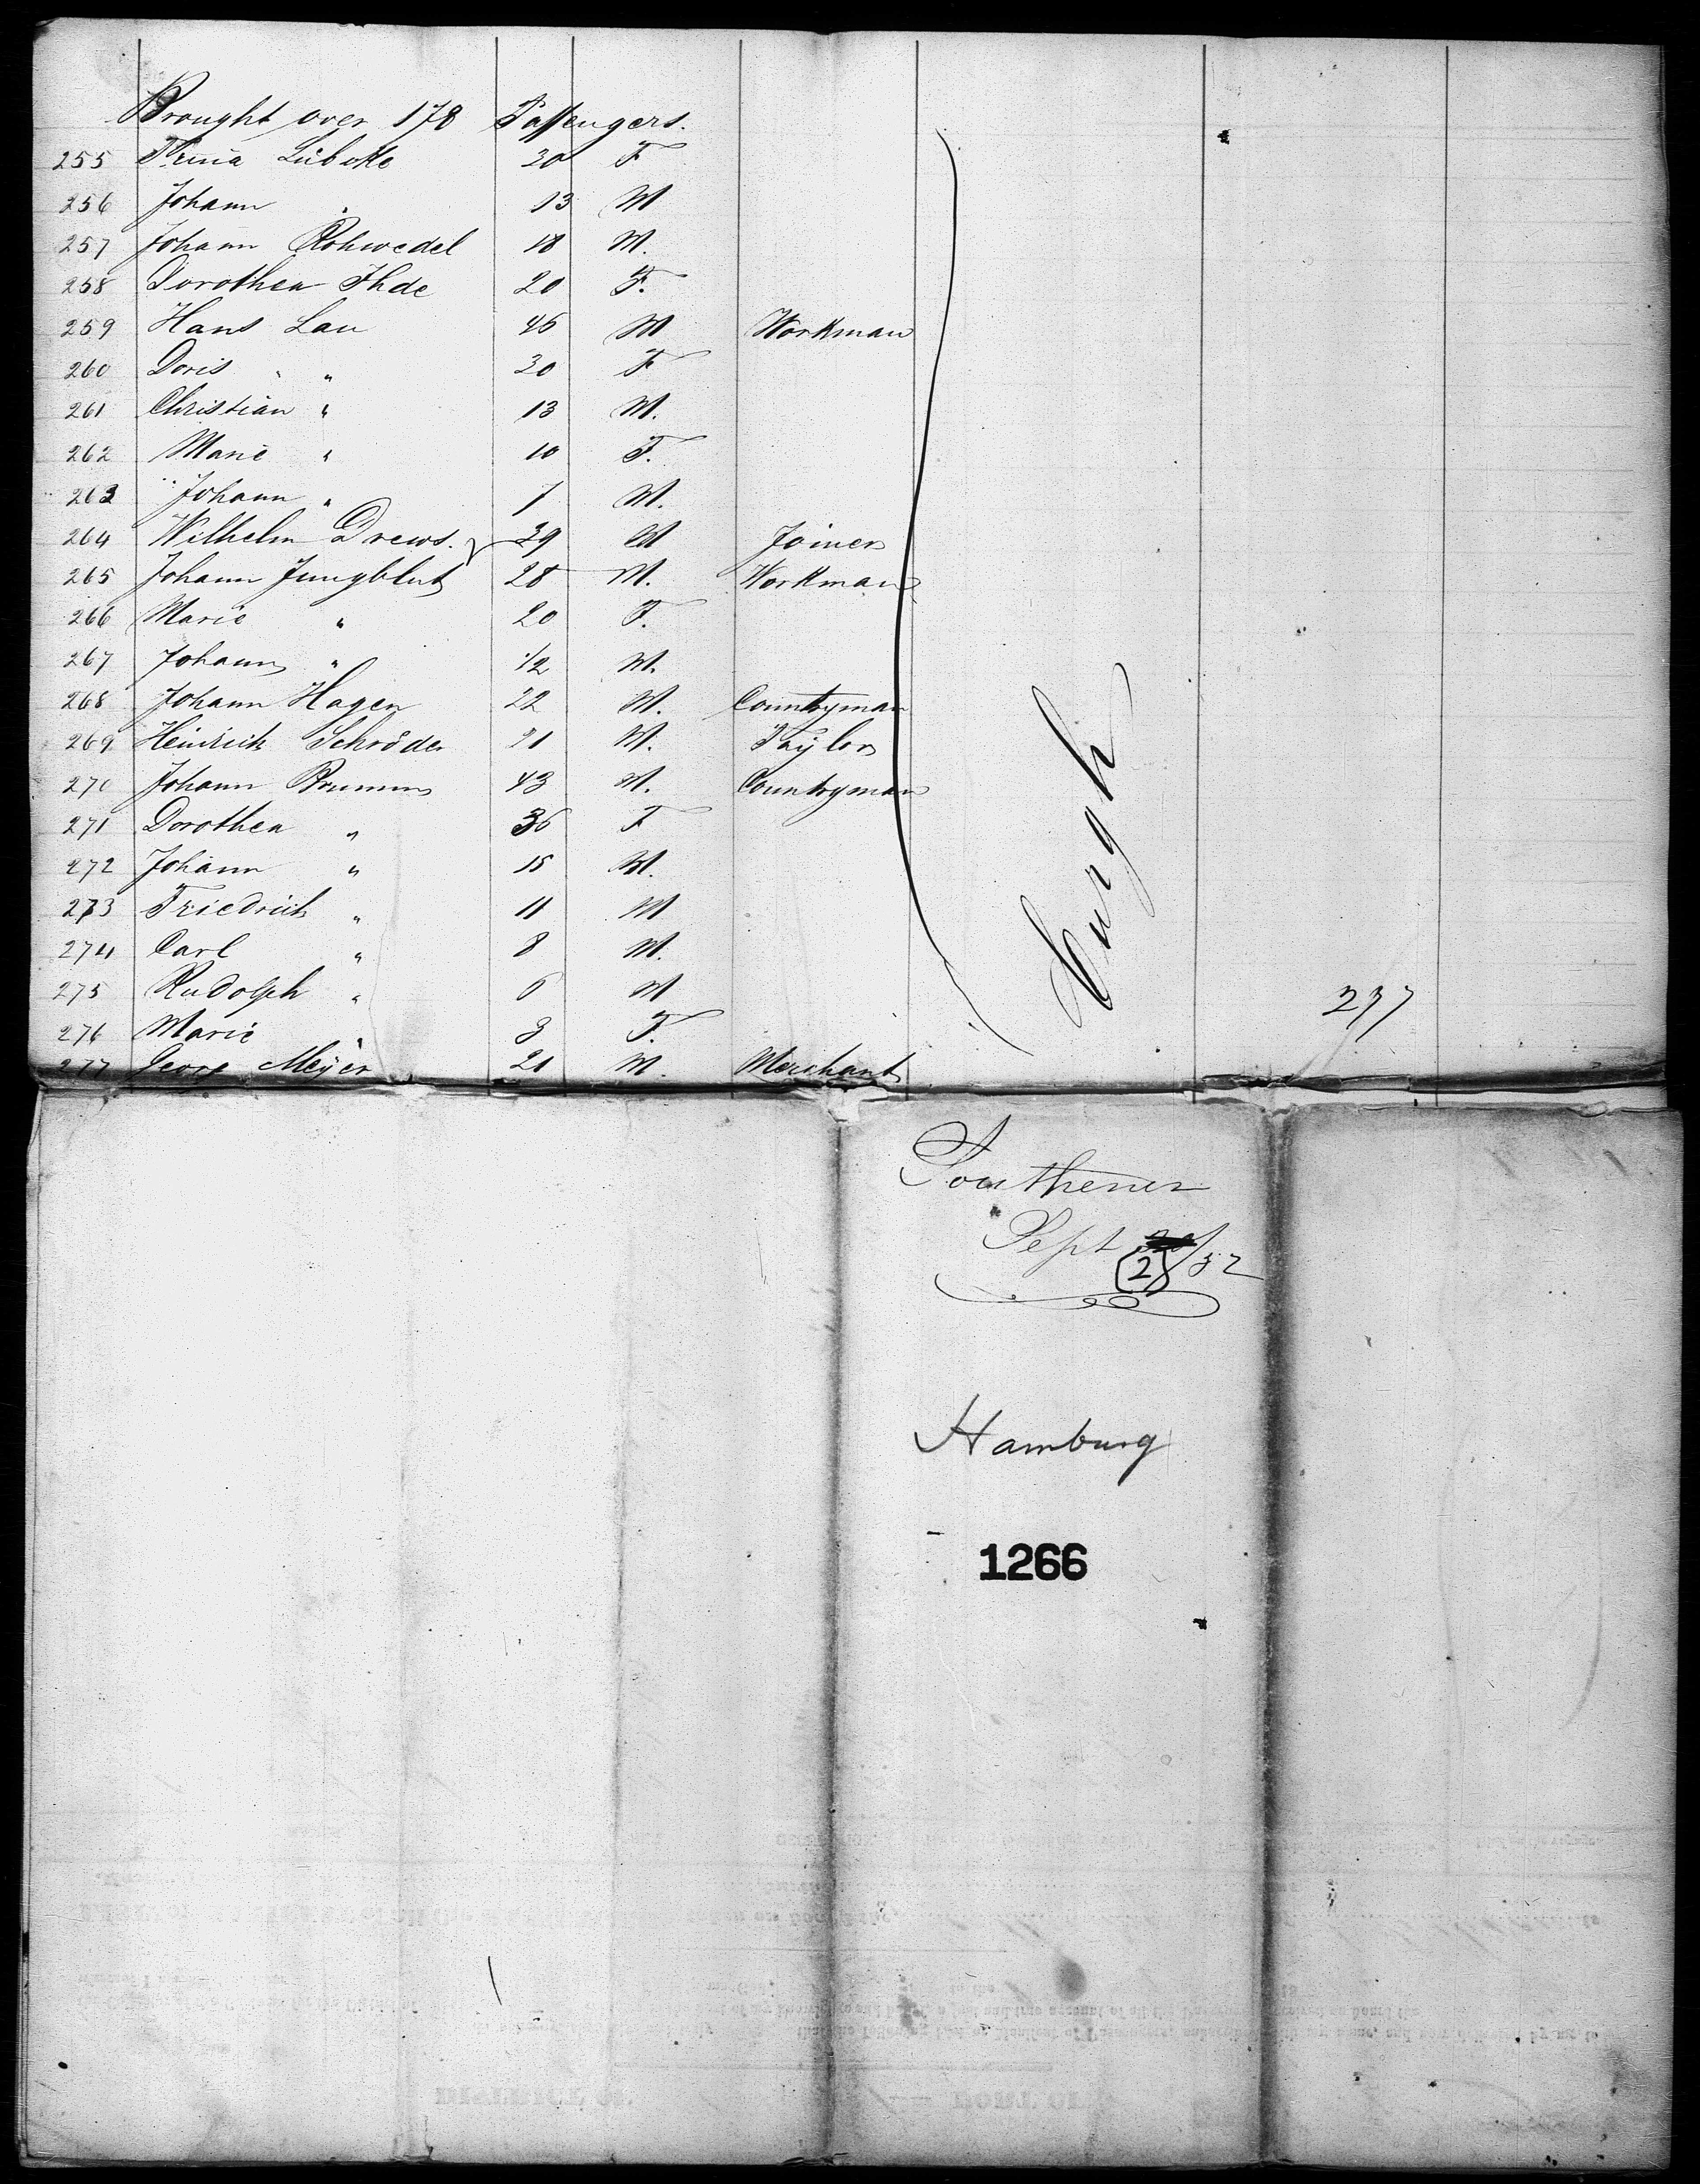 Brought over 178 Passengers.
255 Trina Lübcke 30 F
256 Johann " 13 M
257 Johann Rohwedel 18 M.
258 Dorothea Ihde 20 F.
259 Hans Lau 46 M Workman
260 Doris " " 30 F
261 Christian " 13 M.
262 Marie " 10 F.
263 Johann " 7 M.
264 Wilhelm Drews. 29 M Joiner
265 Johann Jungblut 28 M. Workman
266 Marie " 20 F.
267 Johann " 1/2 M.
268 Johann Hagen 22 M. Countryman
269 Heinrich Schröder 21 M. Taylor
270 Johann Brumm 43 M. Countryman
271 Dorothea " 36 F
272 Johann " 15 M.
273 Friedrich " 11 M
274 Carl " 8 M.
275 Rudolph " 6 M
276 Marie " 3 F.
277 Georg Meyer 21 M. Merchant
burgh
237
Southerner
Sept
(2)/52
Hamburg
1266